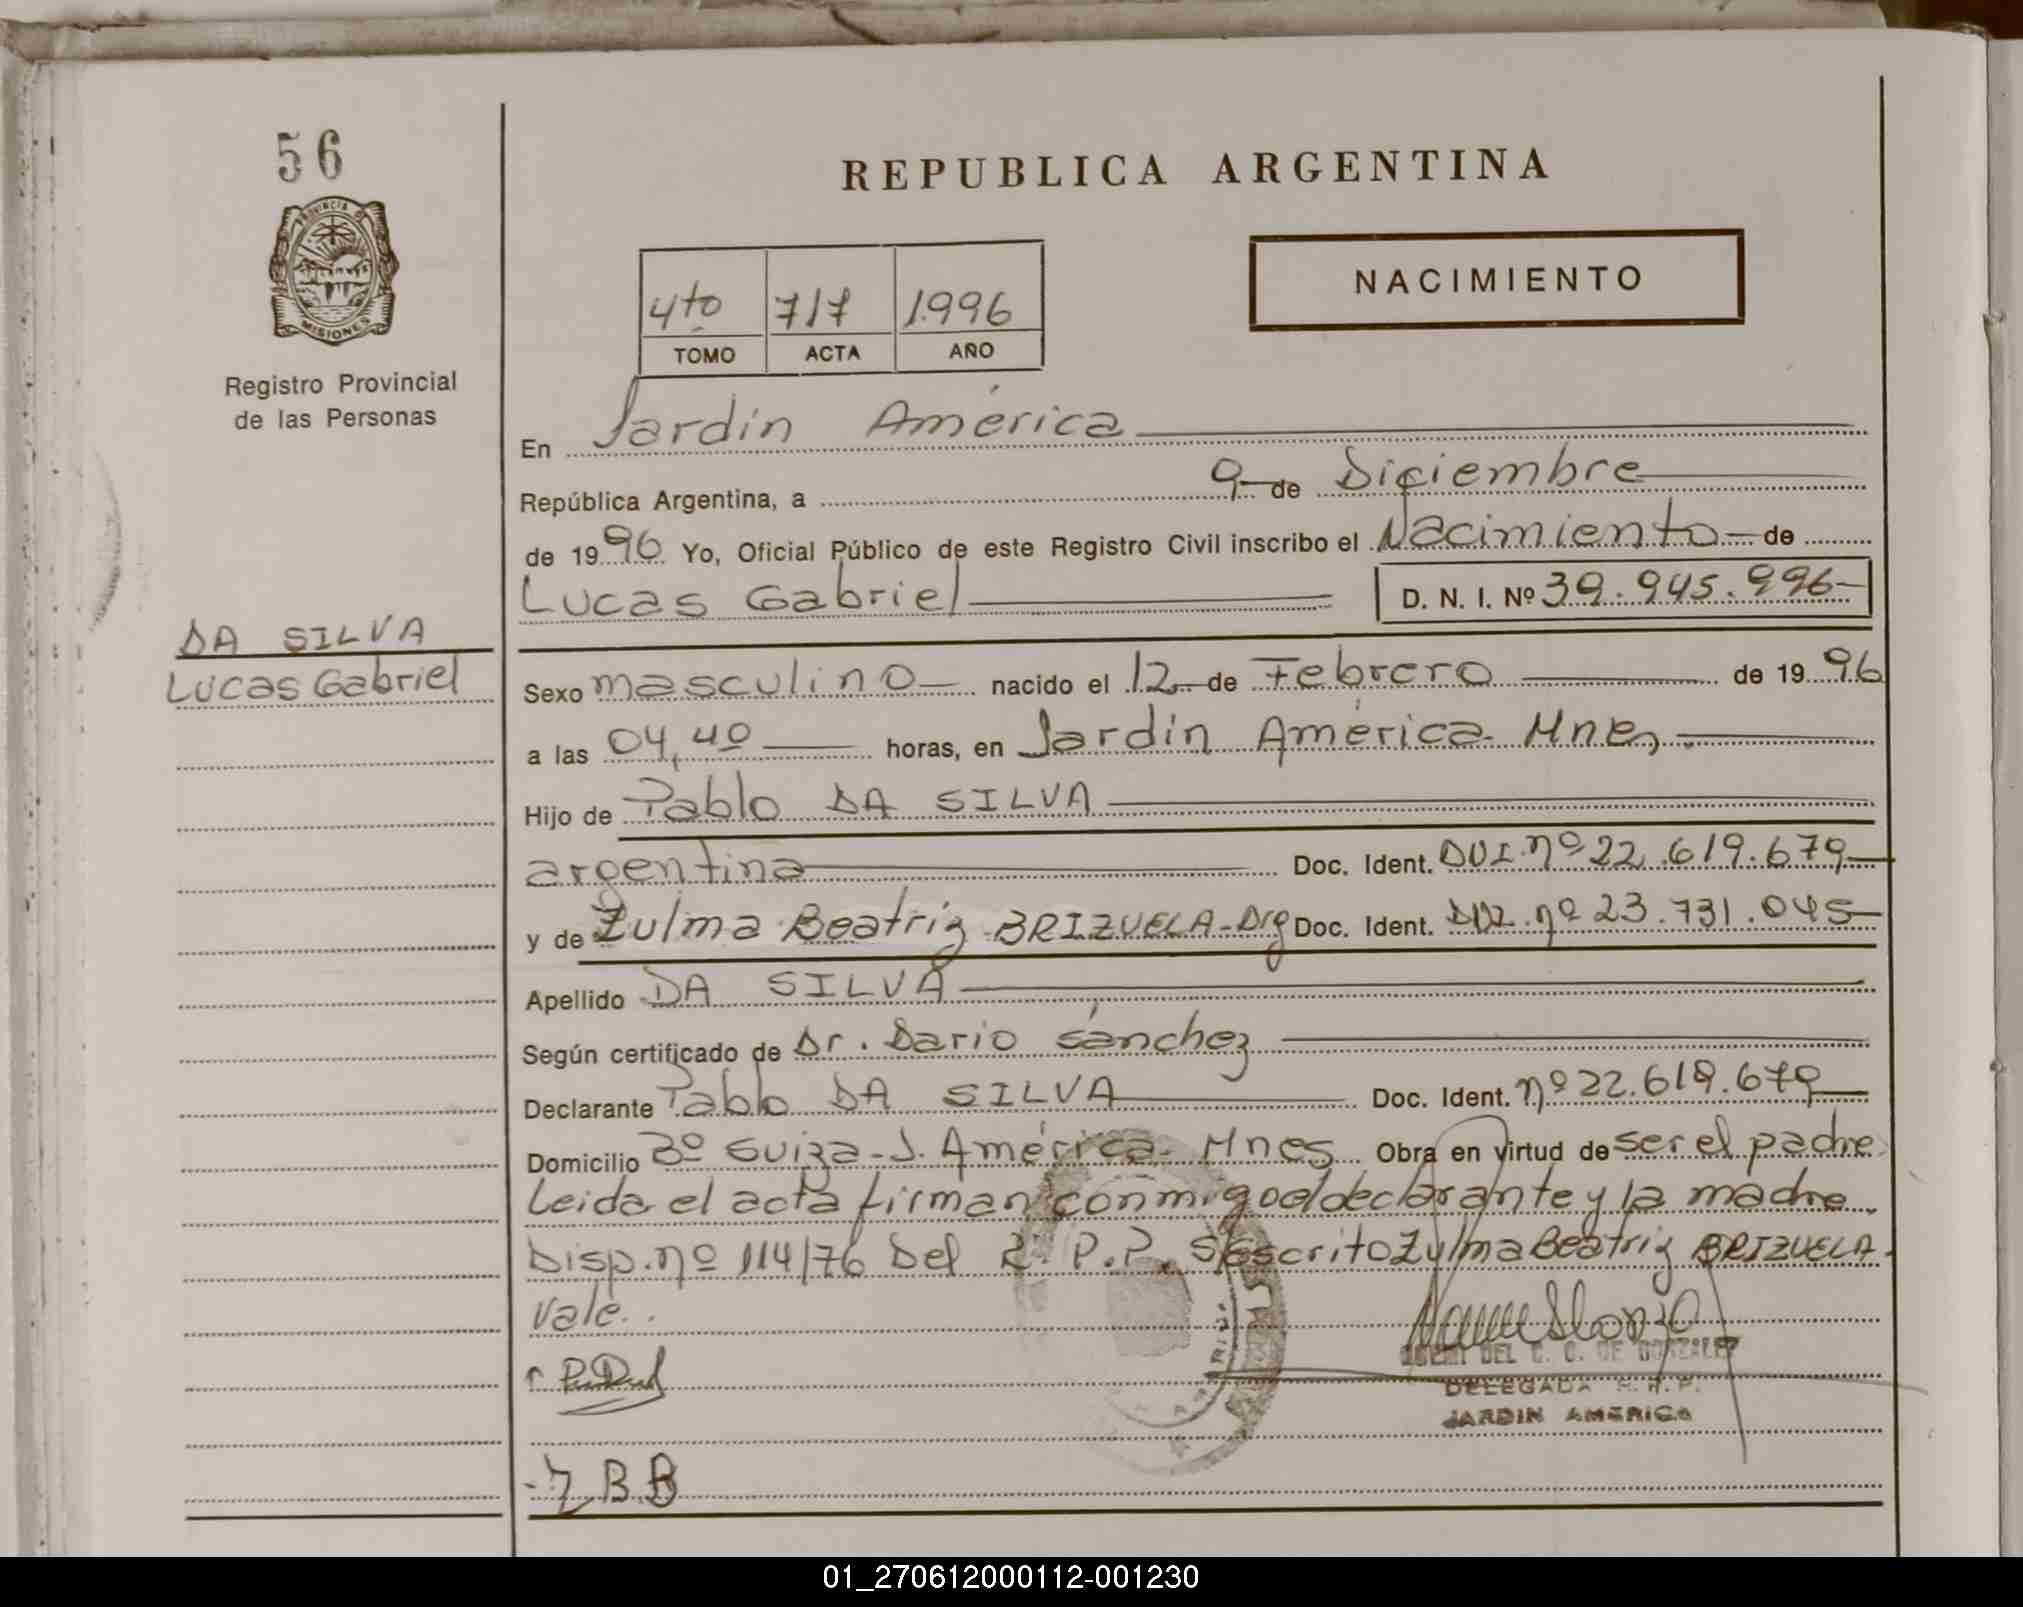 56
PROVINCIA DE
MISIONES
Registro Provincial
de las Personas
DA SILVA
Lucas Gabriel
REPUBLICA ARGENTINA
NACIMIENTO
4to 717 1996
TOMO ACTA AÑO
En Jardín América
República Argentina, a 9 de Diciembre
de 1996 Yo, Oficial Público de este Registro Civil inscribo el Nacimiento de
Lucas Gabriel D. N. I. Nº 39.945.996
Sexo masculino nacido el 12 de Febrero de 1996
a las 04,40 horas, en Jardín América Mnes.
Hijo de Pablo DA SILVA
argentina Doc. Ident. DNI.nº 22.619.679
y de Zulma Beatriz BRIZUELA-Arg Doc. Ident. DNI.nº 23.731.045
Apellido DA SILVA
Según certificado de Dr. Dario Sánchez
Declarante Pablo DA SILVA Doc. Ident. nº 22.619.679
Domicilio Bº Suiza-J. América- Mnes Obra en virtud de ser el padre
Leida el acta firman conmigo el declarante y la madre
Disp.nº 114/76 Del R. P.P. S/escrito Zulma Beatriz BRIZUELA-
Vale..
DEL C. C. DE GONZALEZ
DELEGADA R. P. P.
JARDIN AMERICA
Z B B
01_270612000112-001230